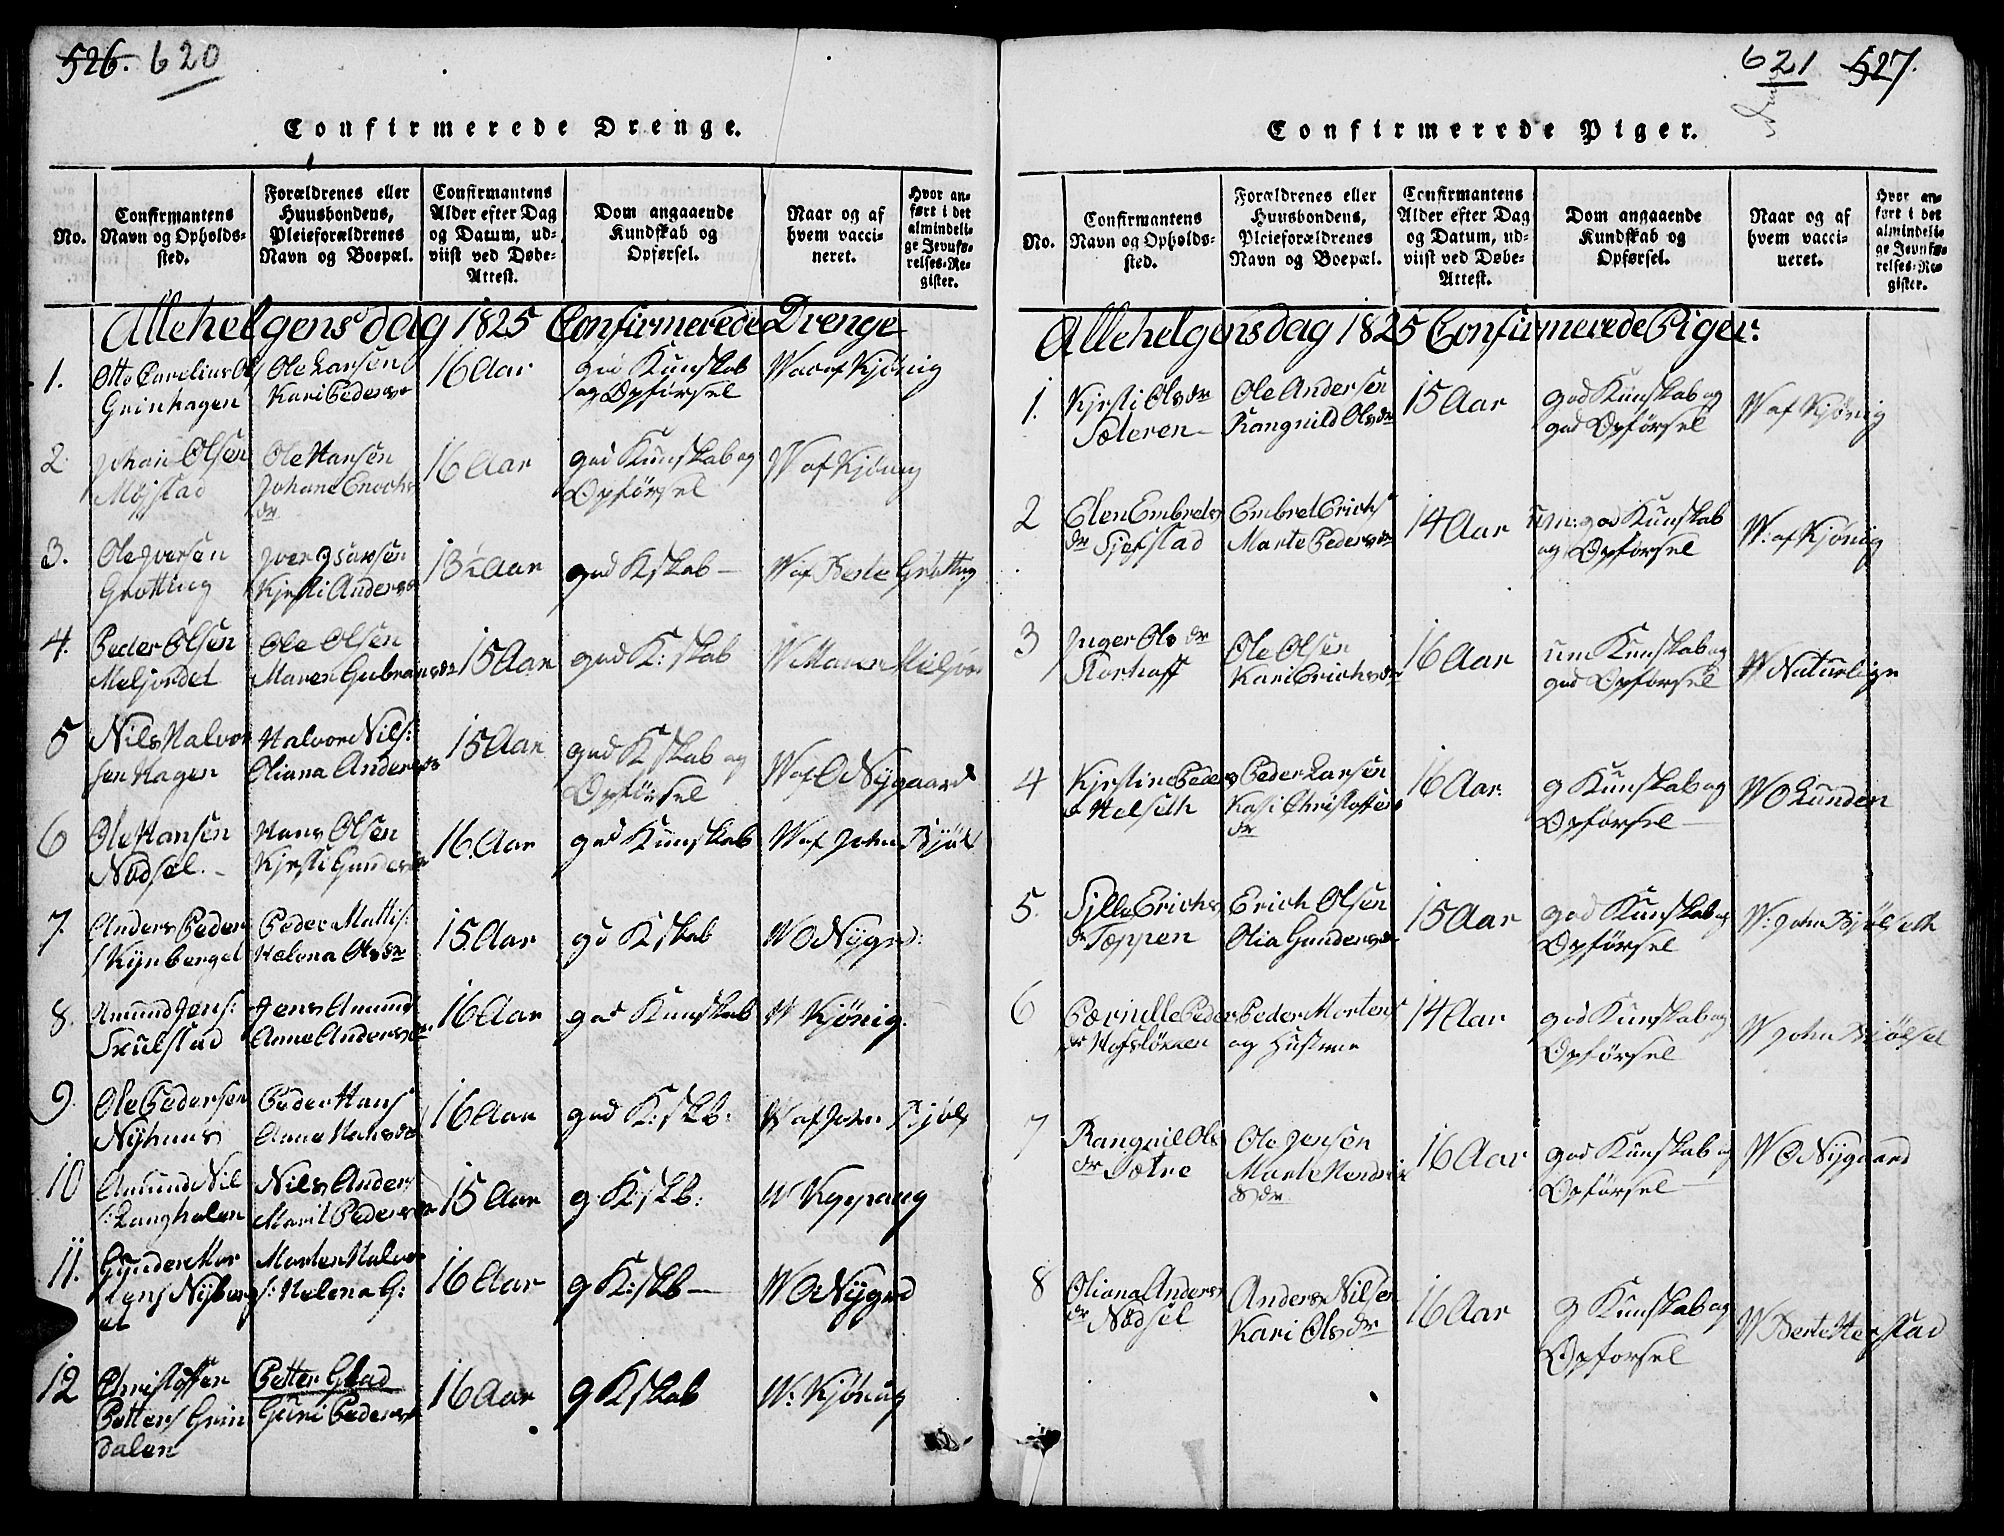 526. 620
Confirmerede Drenge.
No.
Confirmantens Navn og Opholdssted.
Forældrenes eller Huusbondens, Pleieforældrenes Navn og Boepæl.
Confirmantens Alder efter Dag og Datum, udviist ved Døbe-Attest.
Dom angaaende Kundskab og Opførsel.
Naar og af hvem vaccineret.
Hvor anført i det almindelige Jevnførelses-Register.
Allehelgensdag 1825 Confirmerede Drenge
1. Otto Carelius Grinhagen
Ole Larsen
Kari Peders
16 Aar
god Kunskab
og Opførsel
W af Kjönig
2. Johan Olsen
Møjstad
Ole Hansen
Johane Enochs
dr
16 Aar
god Kunskab og
Opførsel
W af Kjönig
3. Ole Jversen
Grötting
Jver
Kjersti Anders
13½ Aar
god Kskab
W af Berte Grötting
4. Peder Olsen
Meljordet
Ole Olsen
Maren Gubrans
15 Aar
god K: skab
W Maren
5 Nils Halvor
sen Hagen
Halvor Nils:
Oliana Anders
15 Aar
god Kskab og
Opførsel
W af O Nygaard
6 Ole Hansen
Nødsel
Hans Olsen
Kjersti Gunders
16. Aar
god Kunskab
W af John Bjöls
7. Anders Peder
s Kynberget
Peder Mattis:
Helena Olsdr
15 Aar
gd Kskab
W O Nygrd:
8. Amund Jens:
Skulstad
Jens Amund
Anne Anders
16 Aar
god Kunskab
W Kjönig
9. Ole Pedersen
Nyhuus
Peder Hans
Anne Hansdr
16 Aar
god K: skb:
W af John Bjöls
10 Amund Nil
s: Langhalen
Nils Anders
Marit Peders
15 Aar
g K: skb:
W Koppang
11. Gunder Mor
tens Nyberg
et
Morten Halvor
s: Helena G:
16 Aar
g K: skb
W O Nygrd
12 Christoffer
Petters Grin
dalen
Petter Glad
Guri Peders
16 Aar
g Kskab
W: Kjönig
621 527.
Confirmerede Piger.
No.
Confirmantens Navn og Opholdssted.
Forældrenes eller Huusbondens, Pleieforældrenes Navn og Boepæl.
Confirmantens Alder efter Dag og Datum, udviist ved Døbe-Attest.
Dom angaaende Kundskab og Opførsel.
Naar og af hvem vaccineret.
Hvor anført i det almindelige Jevnførelses-Register.
Allehelgensdag 1825 Confirmerede Piger:
1. Kjersti Olsdr
Sæteren
Ole Andersen
Rangnild Olsdr
15 Aar
god Kunskab og
god Opførsel
W af Kjönig
2 Elen Embrets
dr Sjefstad
Embret Erichs
Marte Pedersdr
14 Aar
um: god Kunskab
og Opførsel
W: af Kjönig
3 Jnger Olsdr
Storhoff
Ole Olsen
Kari Erichsdr
16 Aar
um Kunskab og
god Opførsel
W Naturlige
4 Kjerstine Peders
Helseth
Peder Larsen
Kari Christoffers
dr
16 Aar
g Kunskab og
Opførsel
W O Lunden
5. Sille Erichs
dr Tøppen
Erich Olsen
Olia Gundersdr
15 Aar
god Kunskab og
Opførsel
W: John Bjölseth
6 Pernille Peders
dr Hofslökken
Peder Mortens
og Hustrue
14 Aar
god Kunskab og
Opførsel
W John Bjölset
7 Rangnil Ols
dr Sætre
Ole Jensen
Marte Hendrik
sdr
16 Aar
god Kunskab og
Opførsel
W O Nygaard
8 Oliana Anders
dr Nødsel
Anders Nilsen
Kari Olsdr
16 Aar
g Kunskab og
Opførsel
W Berte Herstad